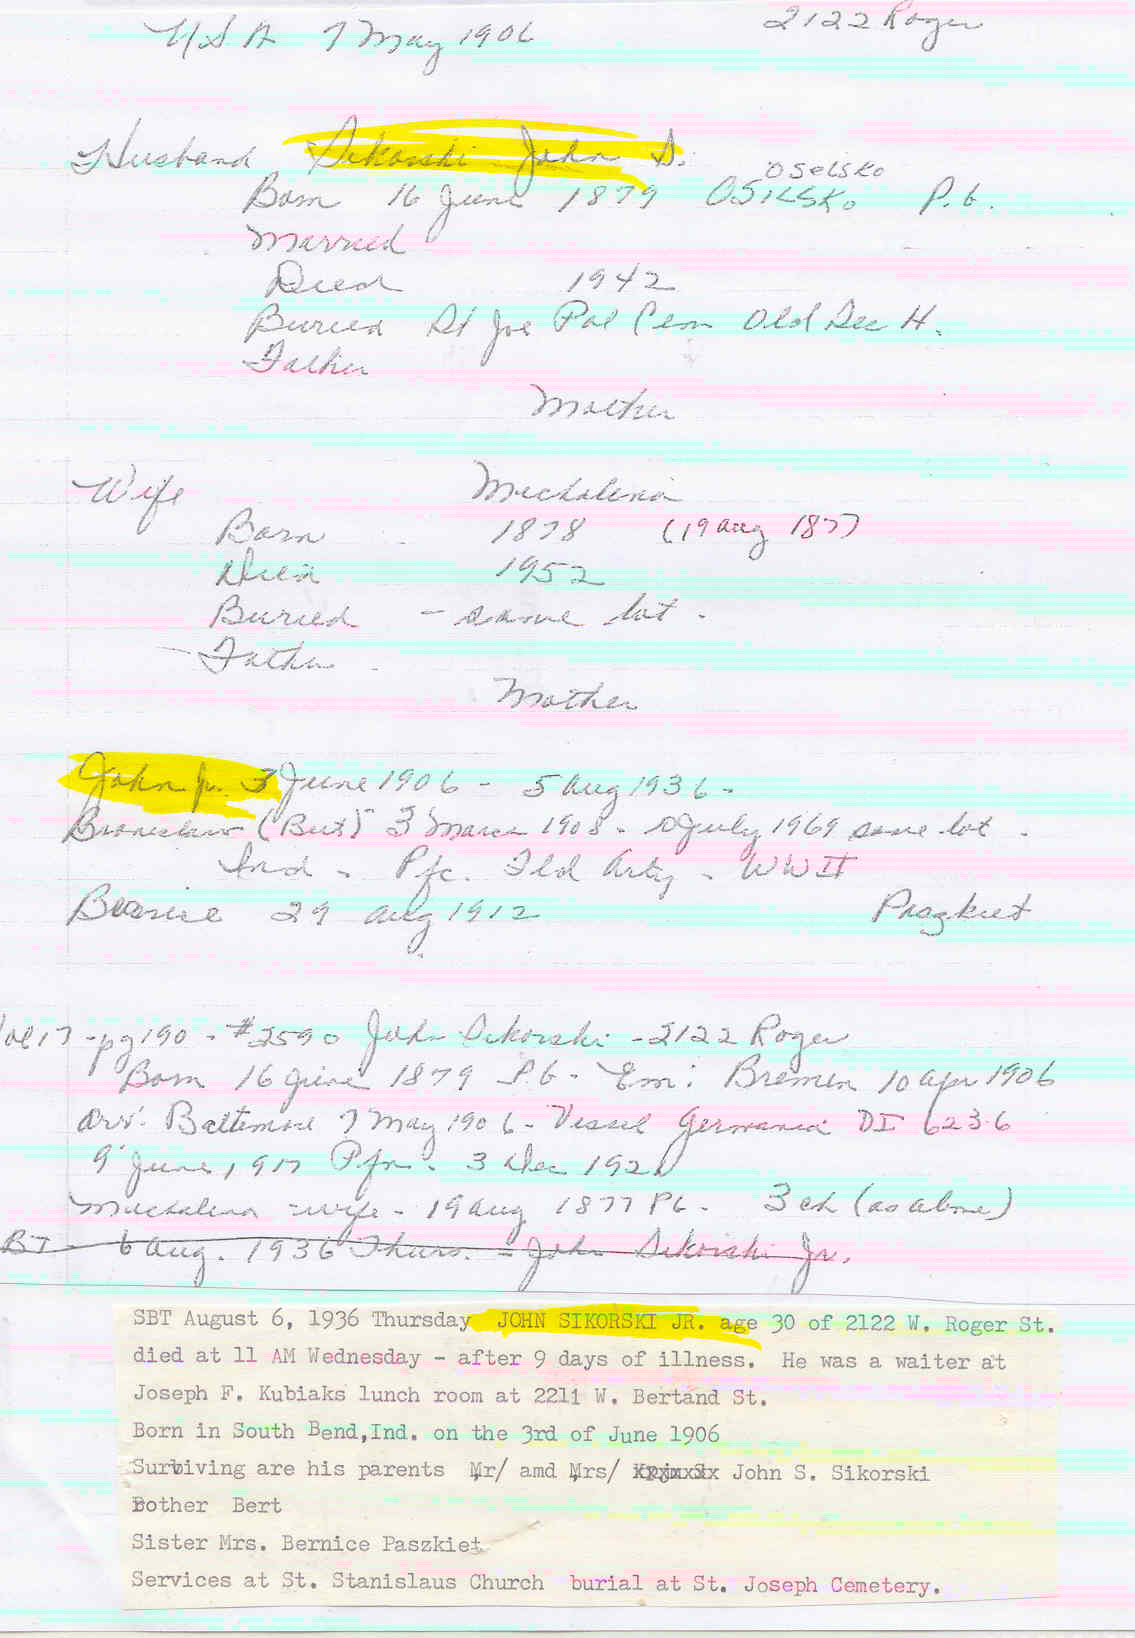 USA 7 May 1906 2122 Roger
Husband Sikorski John S.
OSELSKO
Born 16 June 1879 OSILSKo P.G.
Married
Died 1942
Buried St Joe Pol Cem Old Sec H.
Father
Mother
Wife Michalina
Born 1878 (19 Aug 1877)
Died 1952
Buried - same lot.
Father
Mother
John Jr. 3 June 1906 - 5 Aug 1936 -
Bronislaw (Bert) 3 March 1908 - July 1969 same lot.
Ind - Pfc. Fld Arty - WW II
Bernice 29 Aug 1912 Paszkiet
Vol 17 - pg 190 - #2590 John Sikorski - 2122 Roger
Born 16 June 1879 P.G. - Em: Bremen 10 Apr 1906
Arr: Baltimore 7 May 1906 - Vessel Germania DI 6236
9 June, 1917 3 Dec 1921
Michalina - wife - 19 Aug 1877 PG. 3 ch (as above)
6 Aug. 1936 Thurs. - John Sikorski Jr.
SBT August 6, 1936 Thursday JOHN SIKORSKI JR. age 30 of 2122 W. Roger St.
died at 11 AM Wednesday - after 9 days of illness. He was a waiter at
Joseph F. Kubiaks lunch room at 2211 W. Bertand St.
Born in South Bend,Ind. on the 3rd of June 1906
Surviving are his parents Mr/ amd Mrs/ John S. Sikorski
Bother Bert
Sister Mrs. Bernice Paszkiet
Services at St. Stanislaus Church burial at St. Joseph Cemetery.